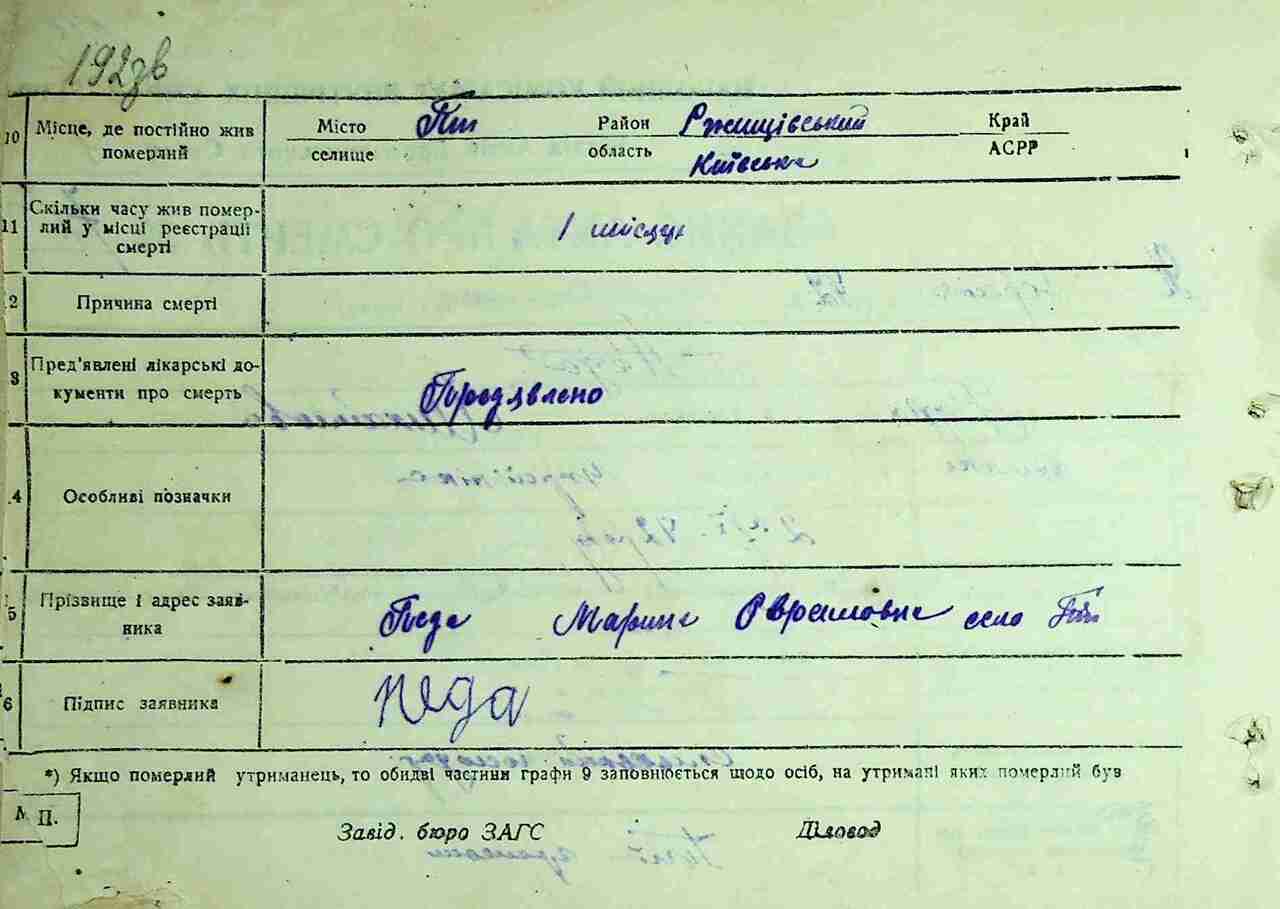 192зв
10 Місце, де постійно жив Місто Пії Район Ржищівський Край
померлий селище область Київська АСРР
11 Скільки часу жив помер-
лий у місці реєстрації 1 місяць
смерті
2 Причина смерті
3 Пред'явлені лікарські до-
кументи про смерть Предявлено
4 Особливі позначки
5 Прізвище і адрес заяв- Педа Марина село Пії
ника
6 Підпис заявника Педа
*) Якщо померлий утриманець, то обидві частини графи 9 заповнюється щодо осіб, на утримані яких померлий був
М. П.
Завід. бюро ЗАГС Діловод